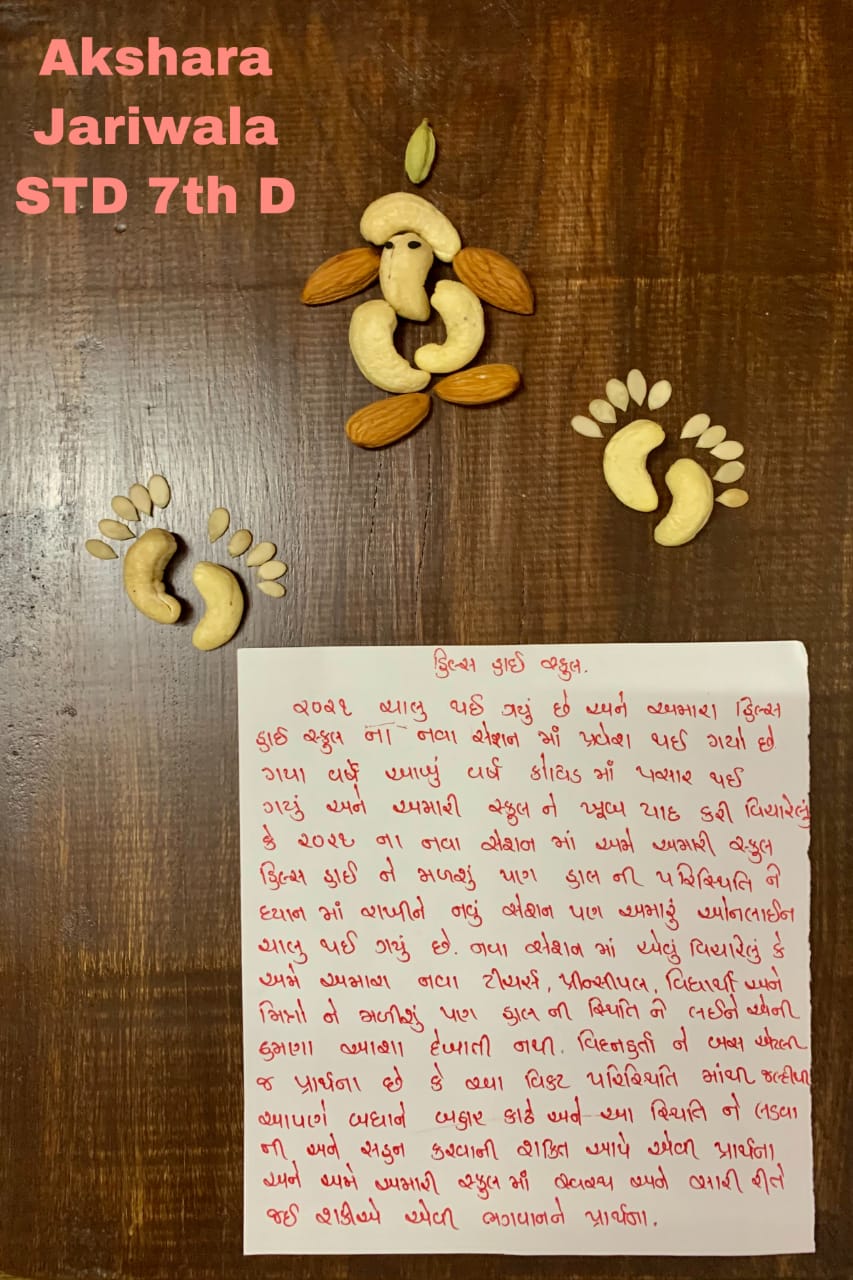 Akshara
Jariwala
STD 7th D
હિલ્સ હાઈ સ્કુલ.
૨૦૨૧ ચાલુ થઈ ગયું છે અને અમારા હિલ્સ
હાઈ સ્કુલ ના નવા સેશન માં પ્રવેશ થઈ ગયો છે
ગયા વર્ષે આખું વર્ષ કોવિડ માં પસાર થઈ
ગયું અને અમારી સ્કુલ ને ખૂબ યાદ કરી વિચારેલું
કે ૨૦૨૧ ના નવા સેશન માં અમે અમારી સ્કુલ
હિલ્સ હાઈ ને મળશું પણ હાલ ની પરિસ્થિતિ ને
ધ્યાન માં રાખીને નવું સેશન પણ અમારું ઓનલાઈન
ચાલુ થઈ ગયું છે. નવા સેશન માં એવું વિચારેલું કે
અમે અમારા નવા ટીચર્સ, પ્રીન્સીપલ, વિદ્યાર્થી અને
મિત્રો ને મળીશું પણ હાલ ની સ્થિતિ ને લઈને એની
હમણા આશા દેખાતી નથી. વિઘ્નહર્તા ને બસ એટલી
જ પ્રાર્થના છે કે આ વિકટ પરિસ્થિતિ માંથી જલ્દીથી
આપણે બધાને બહાર કાઢે અને આ સ્થિતિ ને લડવા
ની અને સહન કરવાની શક્તિ આપે એવી પ્રાર્થના
અને અમે અમારી સ્કુલ માં સ્વસ્થ અને સારી રીતે
જઈ શકીએ એવી ભગવાનને પ્રાર્થના.